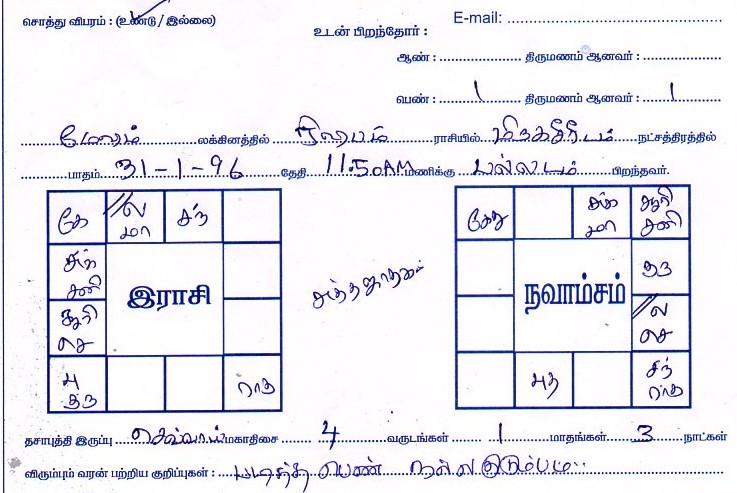 சொத்து விபரம் : (உண்டு / இல்லை)
E-mail:
உடன் பிறந்தோர் :
ஆண் : திருமணம் ஆனவர் :
பெண் : 1 திருமணம் ஆனவர் : 1
மேஷம் லக்கினத்தில் ரிஷபம் ராசியில் மிருகசீரிடம் நட்சத்திரத்தில்
பாதம் 31-1-96 தேதி 11.50AM மணிக்கு பல்லடம் பிறந்தவர்.
கே ல சந்
மா
சுக்
சனி
இராசி
சூரி
செ
பு
குரு
ராகு
சுத்த ஜாதகம்
கேது சுக் சூரி
மா சனி
குரு
நவாம்சம்
ல
செ
புத சந்
ராகு
தசாபுத்தி இருப்பு செவ்வாய் மகாதிசை 4 வருடங்கள் 1 மாதங்கள் 3 நாட்கள்
விரும்பும் வரன் பற்றிய குறிப்புகள் : படித்த பெண் நல்ல குடும்பம்